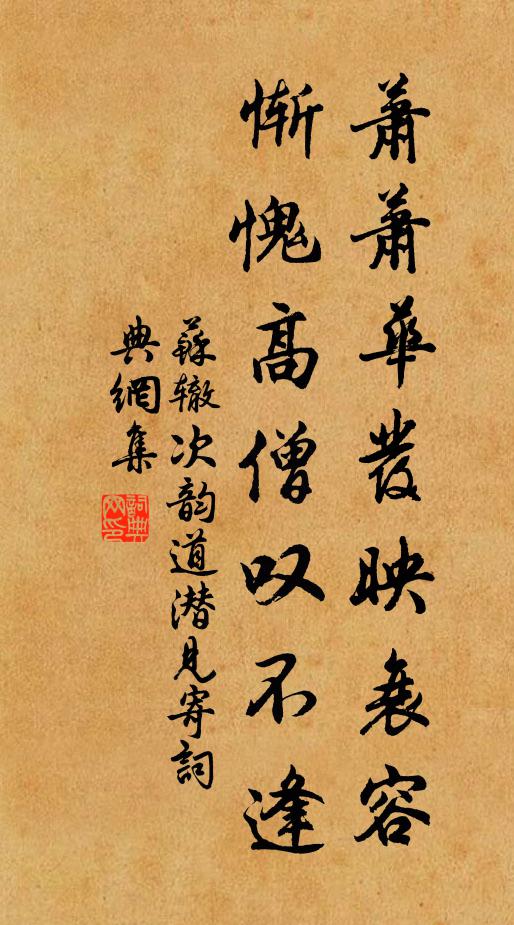 蕭蕭華發映衰容
慚愧高僧叹不逢
蘇辙次韵道潜見寄詞
典網集
詞典
网印